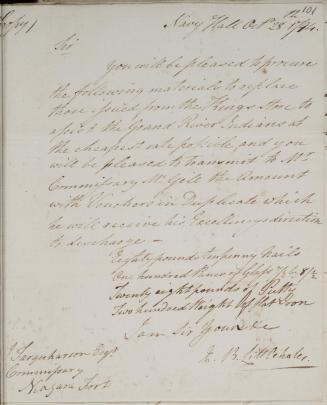 101
(Copy)
Navy Hall Octr 28th 1794.
Sir
You will be pleased to procure
the following materials to replace
those issued from the Kings Store to
assist the Grand River Indians at
the cheapest rate possible, and you
will be pleased to transmit to Mr
Commissary McGill the Amount
with Vouchers in Duplicate which
he will receive his Excellencys direction
to discharge —
Eighty pounds tenpenny Nails
One hundred Panes of Glass 7½ by 8½
Twenty eight pounds of Putty
Two hundred Weight of flat Iron
I am Sir Yours &c
E. B. Littlehales
J Farquharson Esqr
Commissary
Niagara Fort